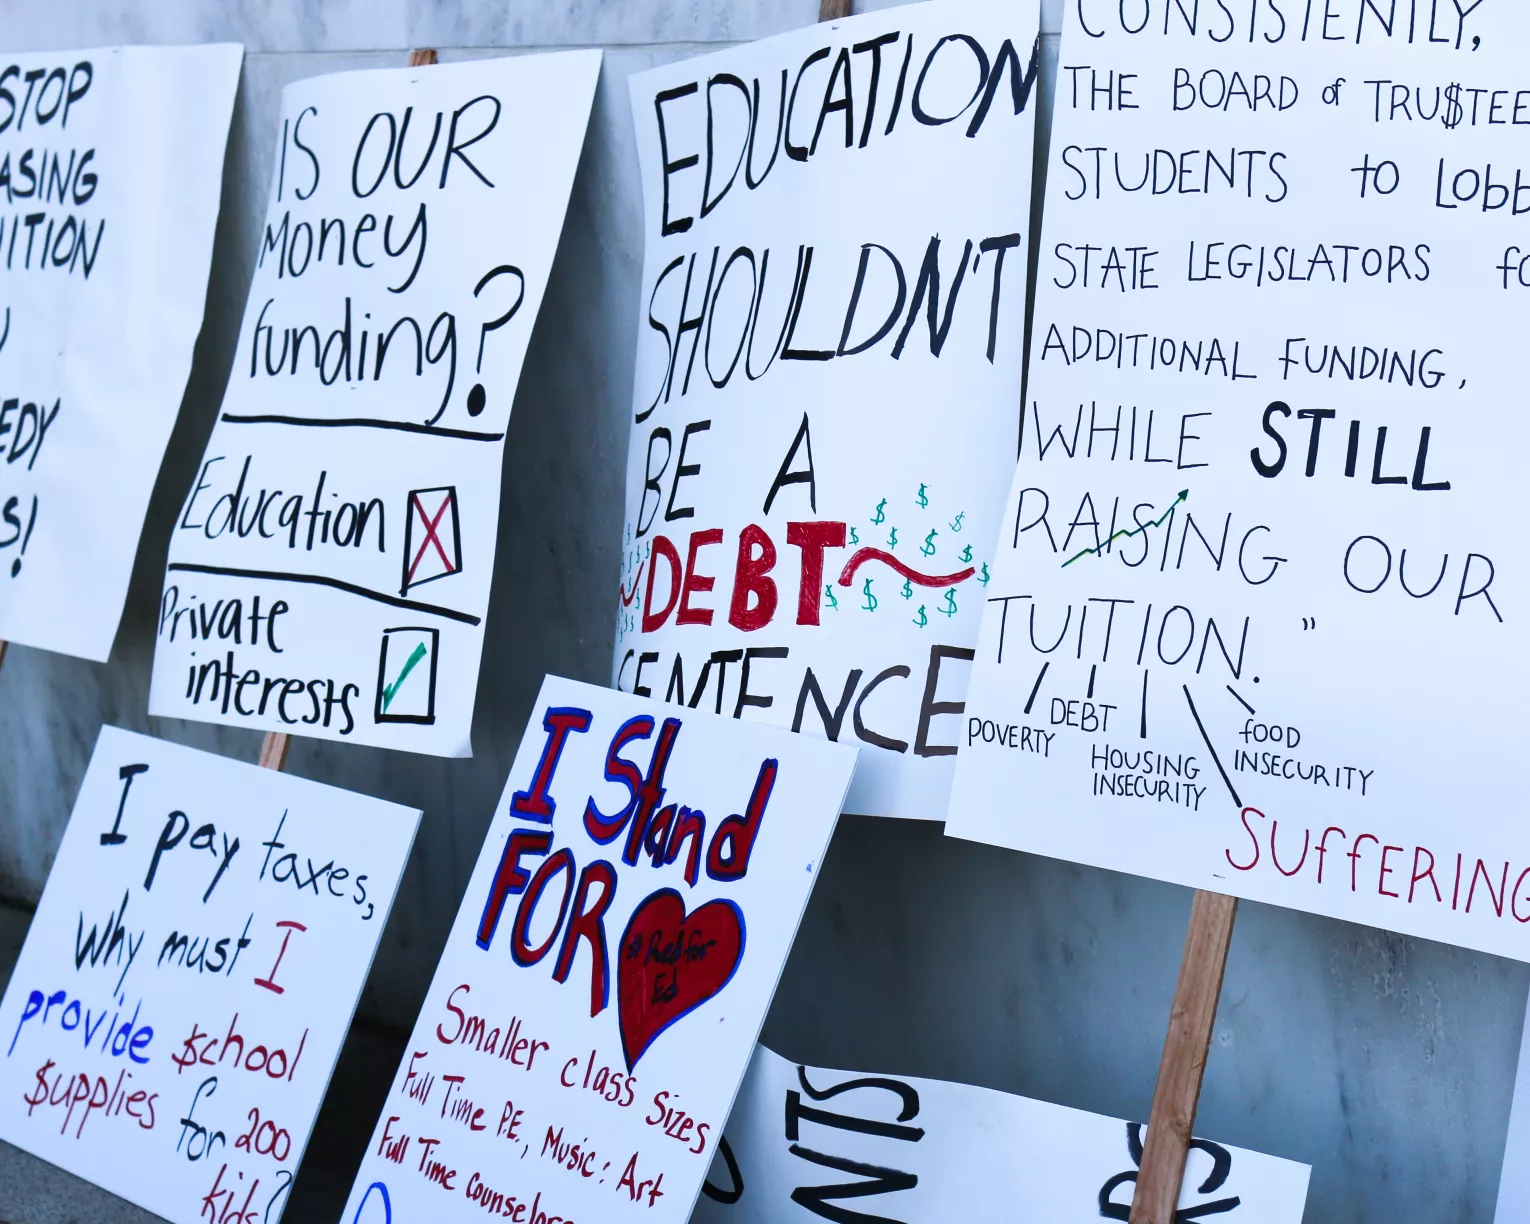 STOP
IS OUR
Money
funding?
Education
Private
interests
EDUCATION
SHOULDN'T
BE A
DEBT
SENTENCE
CONSISTENTLY,
THE BOARD of TRU$TEE
STUDENTS to Lobb
STATE LEGISLATORS fo
ADDITIONAL FUNDING,
WHILE STILL
RAISING OUR
TUITION."
POVERTY
DEBT
HOUSING
INSECURITY
FOOD
INSECURITY
SUFFERING
I pay taxes,
Why must I
provide $chool
$upplies for 200
kids?
I Stand
FOR
Red for
Ed
Smaller class sizes
Full Time P.E., Music: Art
Full Time counselors